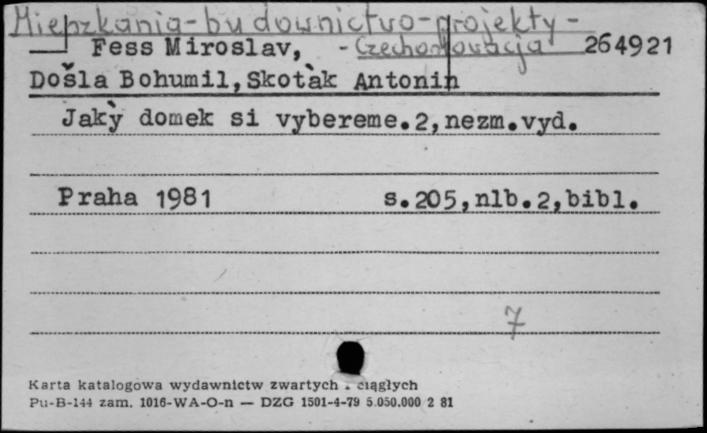 Mieszkania-budownictwo-projekty-
Fess Miroslav, - Czechosłowacja 264921
Došla Bohumil, Skotàk Antonin
Jakỳ domek si vybereme.2,nezm.vyd.
Praha 1981 s.205,nlb.2,bibl.
7
Karta katalogowa wydawnictw zwartych i ciągłych
Pu-B-144 zam. 1016-WA-O-n — DZG 1501-4-79 5.050.000 2 81